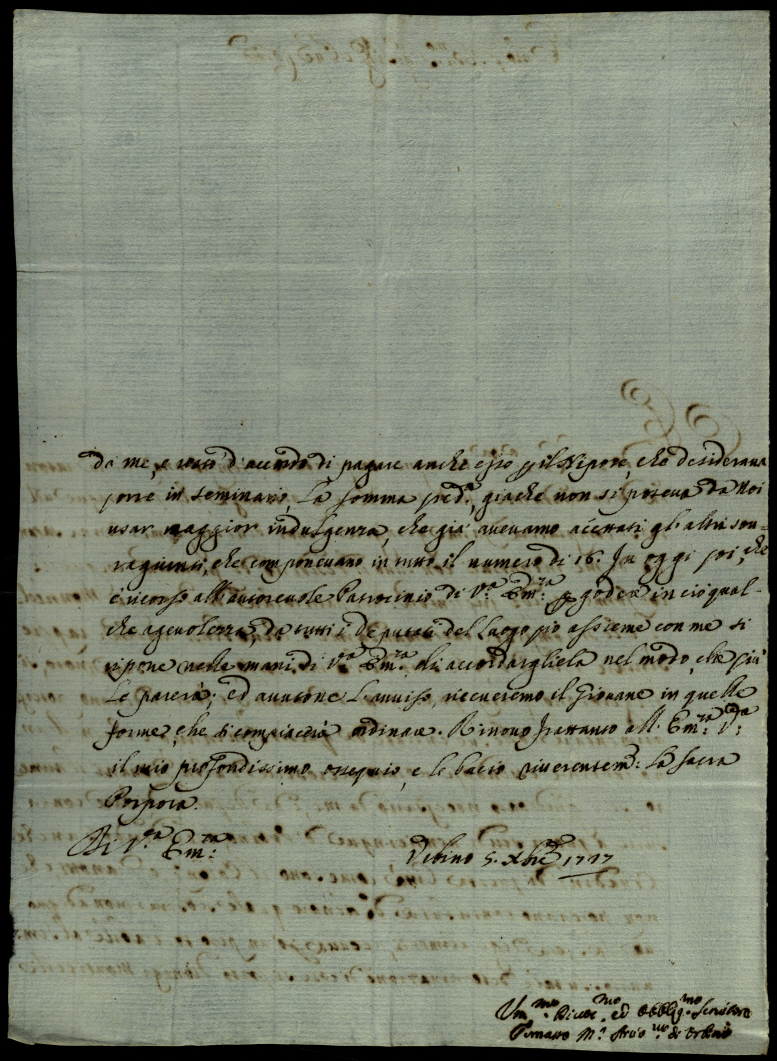 da me, e restò d'accordo di pagare anche esso p il Nipote, che desiderava
porre in seminario, La somma pred.ª, giache non si poteva da Noi
usar maggior indulgenza, che già avevamo accettati gli altri sov=
ragiunti, che componevano in tutto il numero di 16. In oggi poi, che
è ricorso all'autorevole Patrocinio di V.ª Em.ᶻᵃ p goder in ciò qual=
che agevolezza, da tutti i Deputati del Luogo pio assieme con me si
ripone nelle mani di V.ª Em.ᶻᵃ di accordargliela nel modo, che più
Le parerà; ed avutone L'avviso, riceveremo il Giovane in quelle
forme, che si compiacerà ordinare. Rinovo frattanto all' Em.ᶻᵃ V.ª
il mio profondissimo ossequio, e le bacio riverentem.: La Sacra
Porpora.
Di V.ʳᵃ Em.ᶻᵃ
Urbino 5. Xbre 1727
Um.ᵐᵒ Divot.ᵐᵒ ed Obblig.ᵐᵒ Servitore
Tomasso M.ª Arciv.ᵛᵒ di Urbino